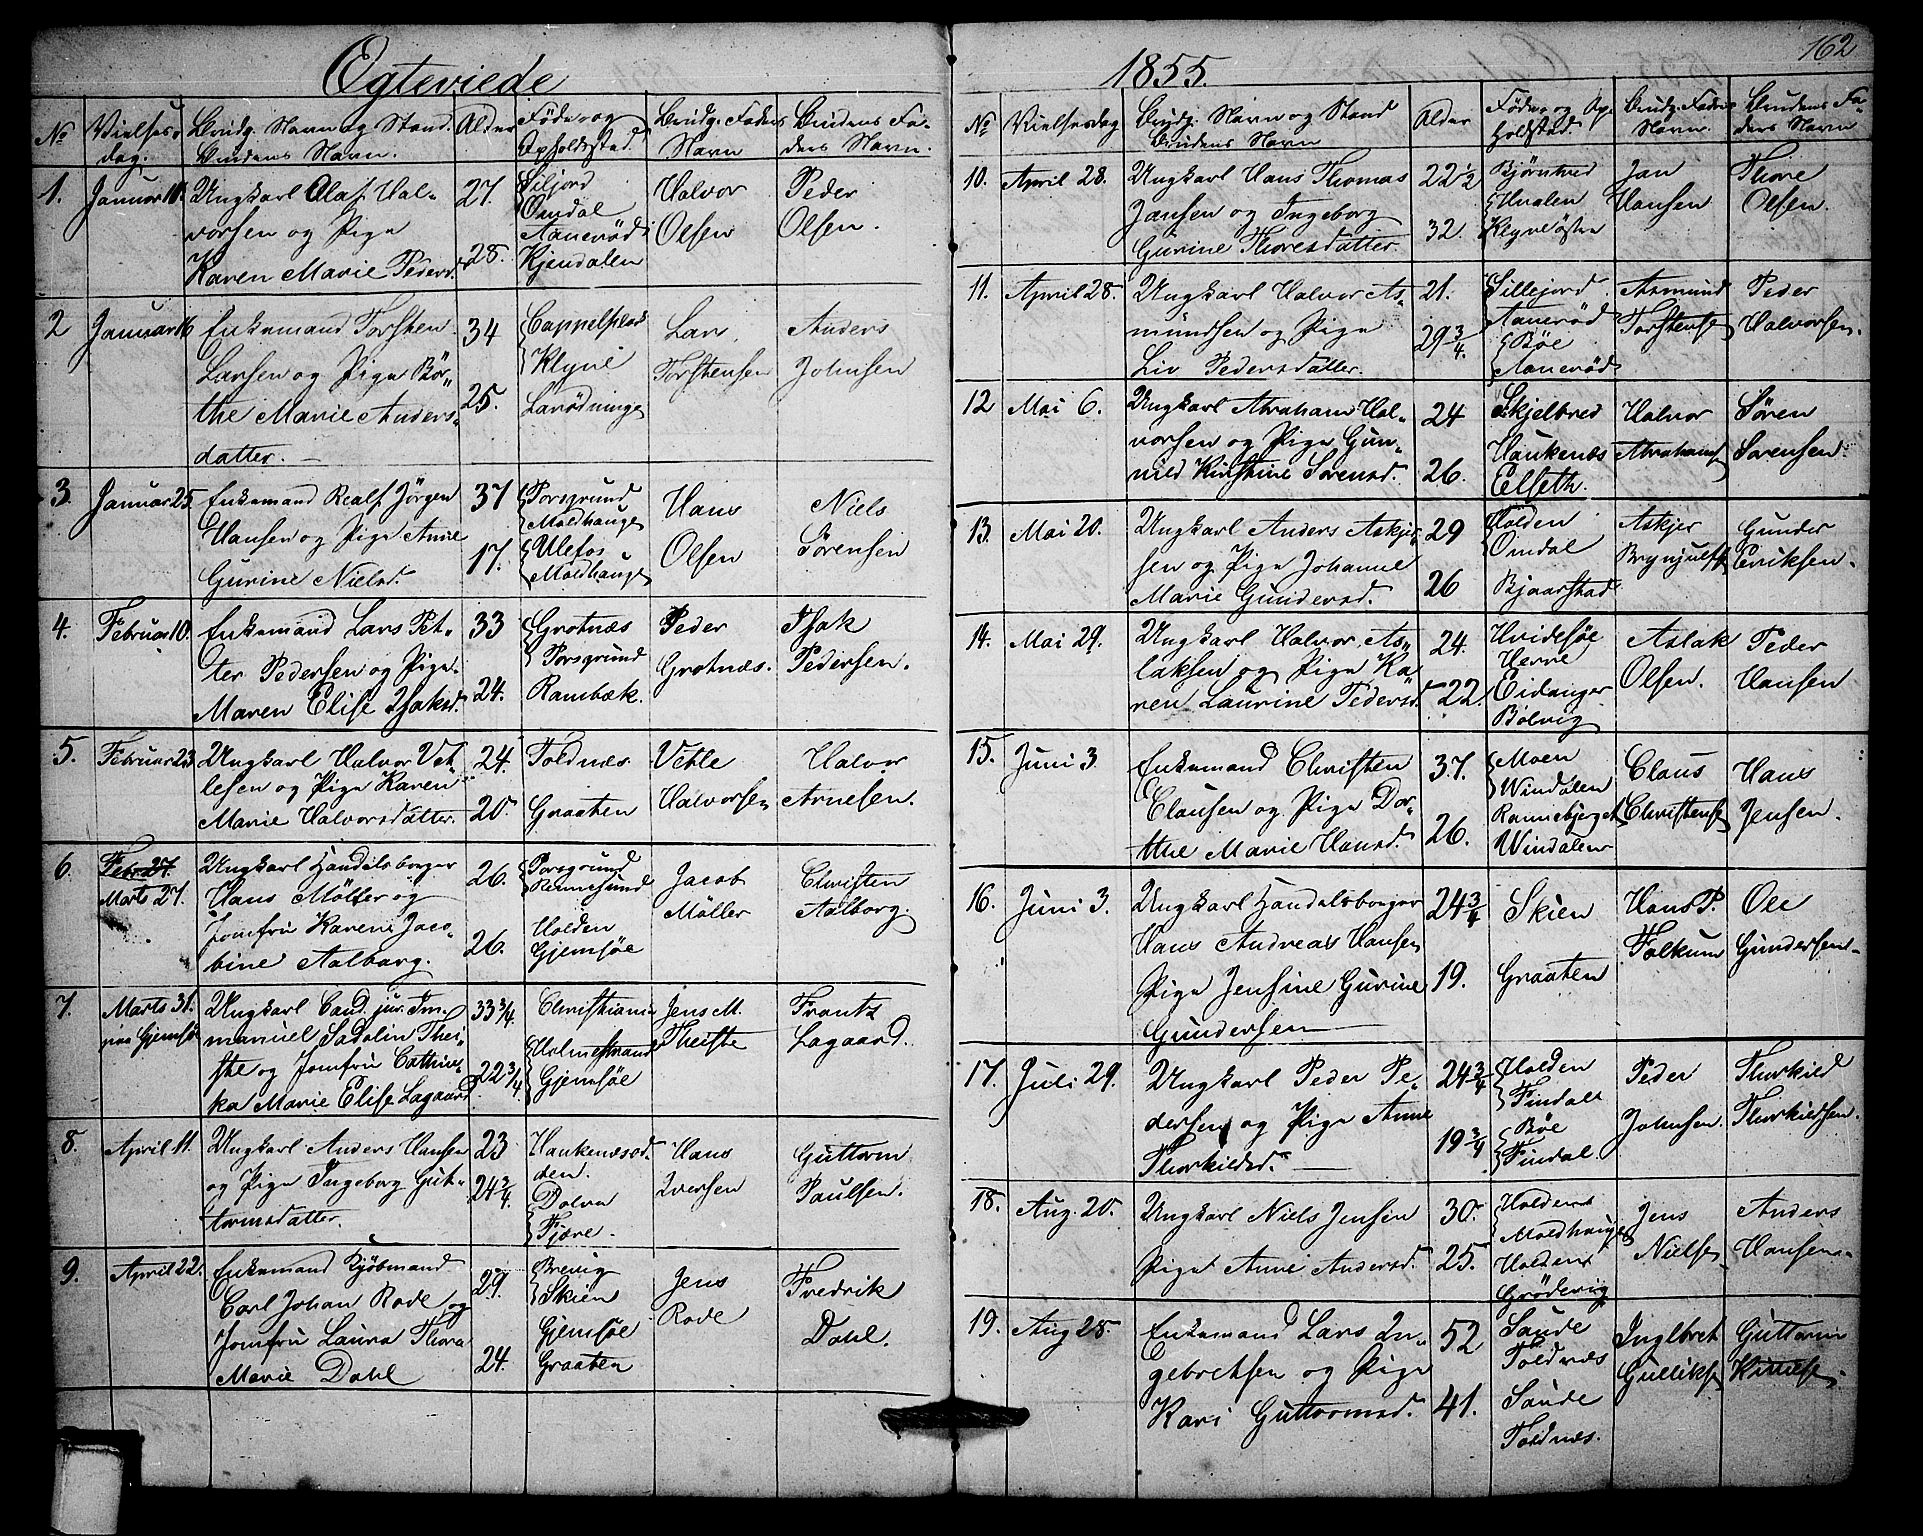 162
Egteviede
1855.
No
Vielses-
dag.
Brudg. Navn og Stand.
Brudens Navn.
Alder
Føde- og
Opholdsstad.
Brudg. Faders
Navn
Brudens Fa-
ders Navn.
1.
Januar 10.
Ungkarl Olaf Hal-
vorsen og Pige
Karen Marie Pedersd.
27.
28.
Siljord
Omdal
Aanerød
Kjendalen
Halvor
Olsen
Peder
Olsen.
2
Januar 16
Enkemand Torsten
Larsen og Pige Bør-
the Marie Anders-
datter.
34
25.
Cappelplads
Klyve
Larødninge
Lars
Torstensen
Anders
Johnsen
3.
Januar 25.
Enkemand Realf Jörgen
Hansen og Pige Anne
Gurine Nielsd.
37
17.
Porsgrund
Moldhauge
Ulefos
Moldhauge
Hans
Olsen
Niels
Sørensen
4.
Februar 10.
Enkemand Lars Pet-
ter Pedersen og Pige
Maren Elise Isaksd.
33
24.
Grotnæs
Porsgrund
Rambæk.
Peder
Grotnæs.
Isak
Pedersen.
5.
Februar 23
Ungkarl Halvor Vet-
lesen og Pige Karen
Marie Halvorsdatter.
24.
20.
Toldnæs
Graaten
Vetle
Halvorsen
Halvor
Arnesen.
6.
Febr. 27.
Marts 27.
Ungkarl Handelsborger
Hans Möller og
Jomfru Karen Jaco-
bine Aalborg.
26.
26.
Porsgrund
Rønnesund
Holden
Gjemsøe
Jacob
Møller
Christen
Aalborg.
7.
Marts 31.
paa Gjemsø
Ungkarl Cand. jur. Im-
manuel Sadolin Thei-
ste og Jomfru Cathrin-
ka Marie Elise Lagaard
33 3/4.
22 3/4.
Christiania
Holmestrand
Gjemsøe
Jens M.
Theiste
Frantz
Lagaard.
8.
April 11.
Ungkarl Anders Hansen
og Pige Ingeborg Gut-
tormsdatter.
23
24 3/4
Haukenæsod-
den.
Dolva
Fjære.
Hans
Iversen
Guttorm
Paulsen.
9.
April 22.
Enkemand Kjöbmand
Carl Johan Rode og
Jomfru Laura Thora
Marie Dahl
29.
24.
Brevig
Skien
Gjemsøe
Graaten
Jens
Rode
Fredrik
Dahl.
No
Vielsesdag
Brudg. Navn og Stand
Brudens Navn
Alder
Føde- og Op-
holdsstad.
Brudg. Faders
Navn.
Brudens Fa-
ders Navn
10.
April 28.
Ungkarl Hans Thomas
Jansen og Ingeborg
Gurine Thoresdatter.
22 1/2
32.
Bjørntved
Hvalen
Klyve østre
Jan
Hansen
Thore
Olsen.
11.
April 28.
Ungkarl Halvor As-
mundsen og Pige
Liv Pedersdatter.
21.
29 3/4.
Sillejord
Aanerød
Bøe
Aanerød
Asmund
Torstensen
Peder
Halvorsen.
12
Mai 6.
Ungkarl Abraham Hal-
vorsen og Pige Gun-
nild Kirstine Sørensd.
24
26.
Skjelbred
Haukenæs
Elseth.
Halvor
Abrahams
Søren
Sørensen
13.
Mai 20.
Ungkarl Anders Askjer-
sen og Pige Johanne
Marie Gundersd.
29
26
Holden
Omdal
Bjaarstad
Askjer
Brynjulfs
Gunder
Eriksen.
14.
Mai 29.
Ungkarl Halvor As-
laksen og Pige Ka-
ren Laurine Pedersd.
24.
22.
Hvidesøe
Herre
Eidanger
Bølvig
Aslak
Olsen.
Peder
Hansen
15.
Juni 3
Enkemand Christen
Clausen og Pige Dor-
the Marie Hansd.
37.
26.
Moen
Windalen
Rønnebjerget
Windalen
Claus
Christens
Hans
Jensen.
16.
Juni 3.
Ungkarl Handelsborger
Hans Andreas Hansen
Pige Jensine Gurine
Gundersen
24 3/4
19.
Skien
Graaten
Hans P.
Folkum
Ole
Gundersen
17.
Juli 29.
Ungkarl Peder Pe-
dersen og Pige Anne
Thorkildsd.
24 3/4
19 3/4
Holden
Findal
Bøe
Findal.
Peder
Johnsen.
Thorkild
Thorkildsen.
18.
Aug. 20.
Ungkarl Niels Jensen
Pige Anne Andersd.
30.
25.
Holden
Moldhauge
Holden
Grøderig
Jens
Nielsen
Anders
Hansen
19.
Aug 28.
Enkemand Lars In-
gebretsen og Pige
Kari Guttormsd.
52
41.
Saude
Toldnæs
Saude
Toldnæs.
Ingebret
Gulliks
Guttorm